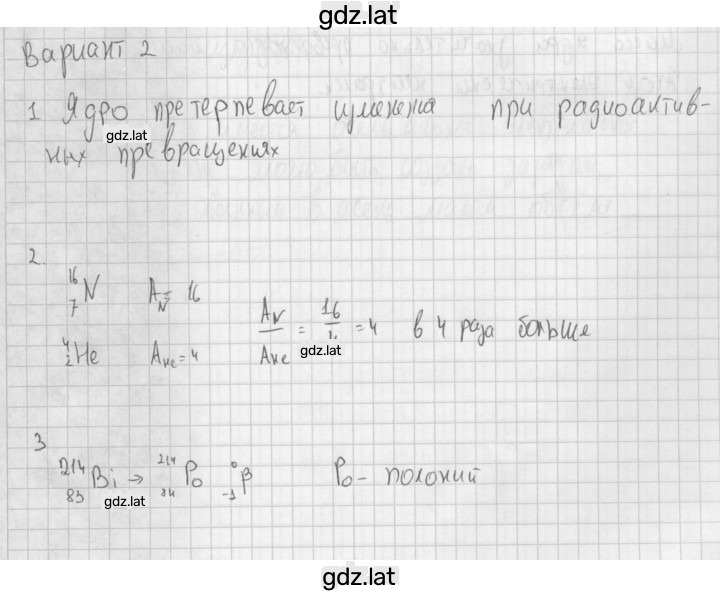 gdz.lat
Вариант 2
1 Ядро претерпевает изменения при радиоактив-
gdz.lat
ных превращениях
2.
¹⁶₇N A_N = 16
A_N/A_He = 16/4 = 4 в 4 раза больше
gdz.lat
⁴₂He A_He = 4
3
²¹⁴₈₃Bi → ²¹⁴₈₄Po ⁰₋₁β Po - полоний
gdz.lat
gdz.lat